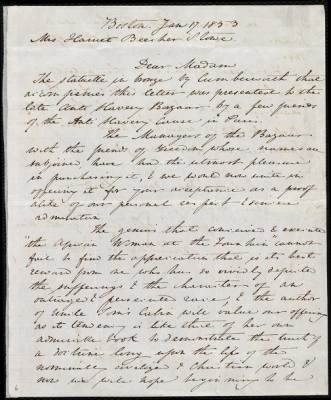 Boston Jan 17 1853
Mrs Harriet Beecher Stowe
Dear Madam
The statuette in bronze by Cumberworth that
accompanies this letter was presented to the
late Anti Slavery Bazaar by a few friends
of the Anti Slavery Cause in Paris.
The Managers of the Bazaar
with the friends of freedom whose names are
subjoined have had the utmost pleasure
in purchasing it, & we would now unite in
offering it for your acceptance as a proof
alike of our personal respect & sincere
admiration
The genius that conceived & executed
"the African Woman at the Fountain" cannot
fail to find the appreciation that is its best
reward from one who has so vividly depicted
the sufferings & the characters of an
outraged & persecuted race, & the author
of Uncle Tom's Cabin will value our offering
as its tendency is like that of her own
admirable book to demonstrate the truth of
a doctrine long upon the lips of the
nominally civilized & Christian world &
now we will hope beginning to be